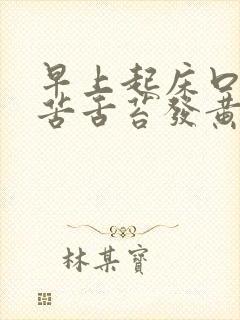 早上起床口
苦舌苔發黃
林某寶